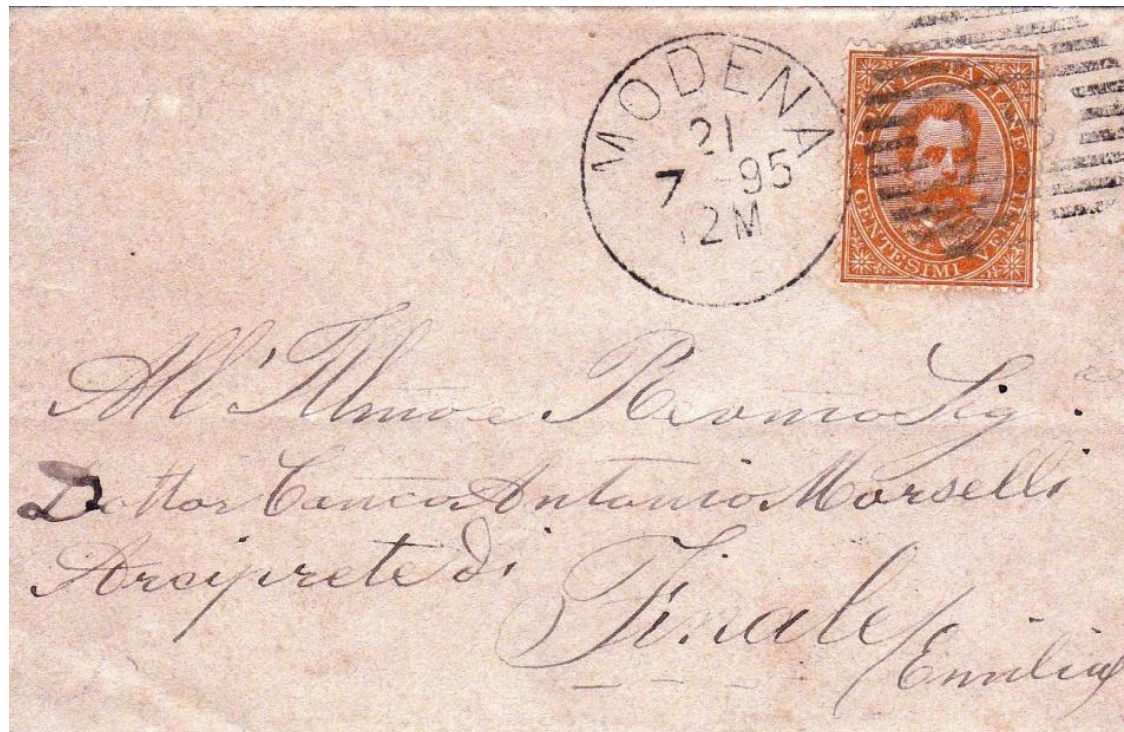 MODENA
21
7-95
12M
POSTE ITALIANE
CENTESIMI VENTI
All'Illmo e Revmo Sig.
Dottor Canco Antonio Morselli
Arciprete di
Finale
(Emilia)